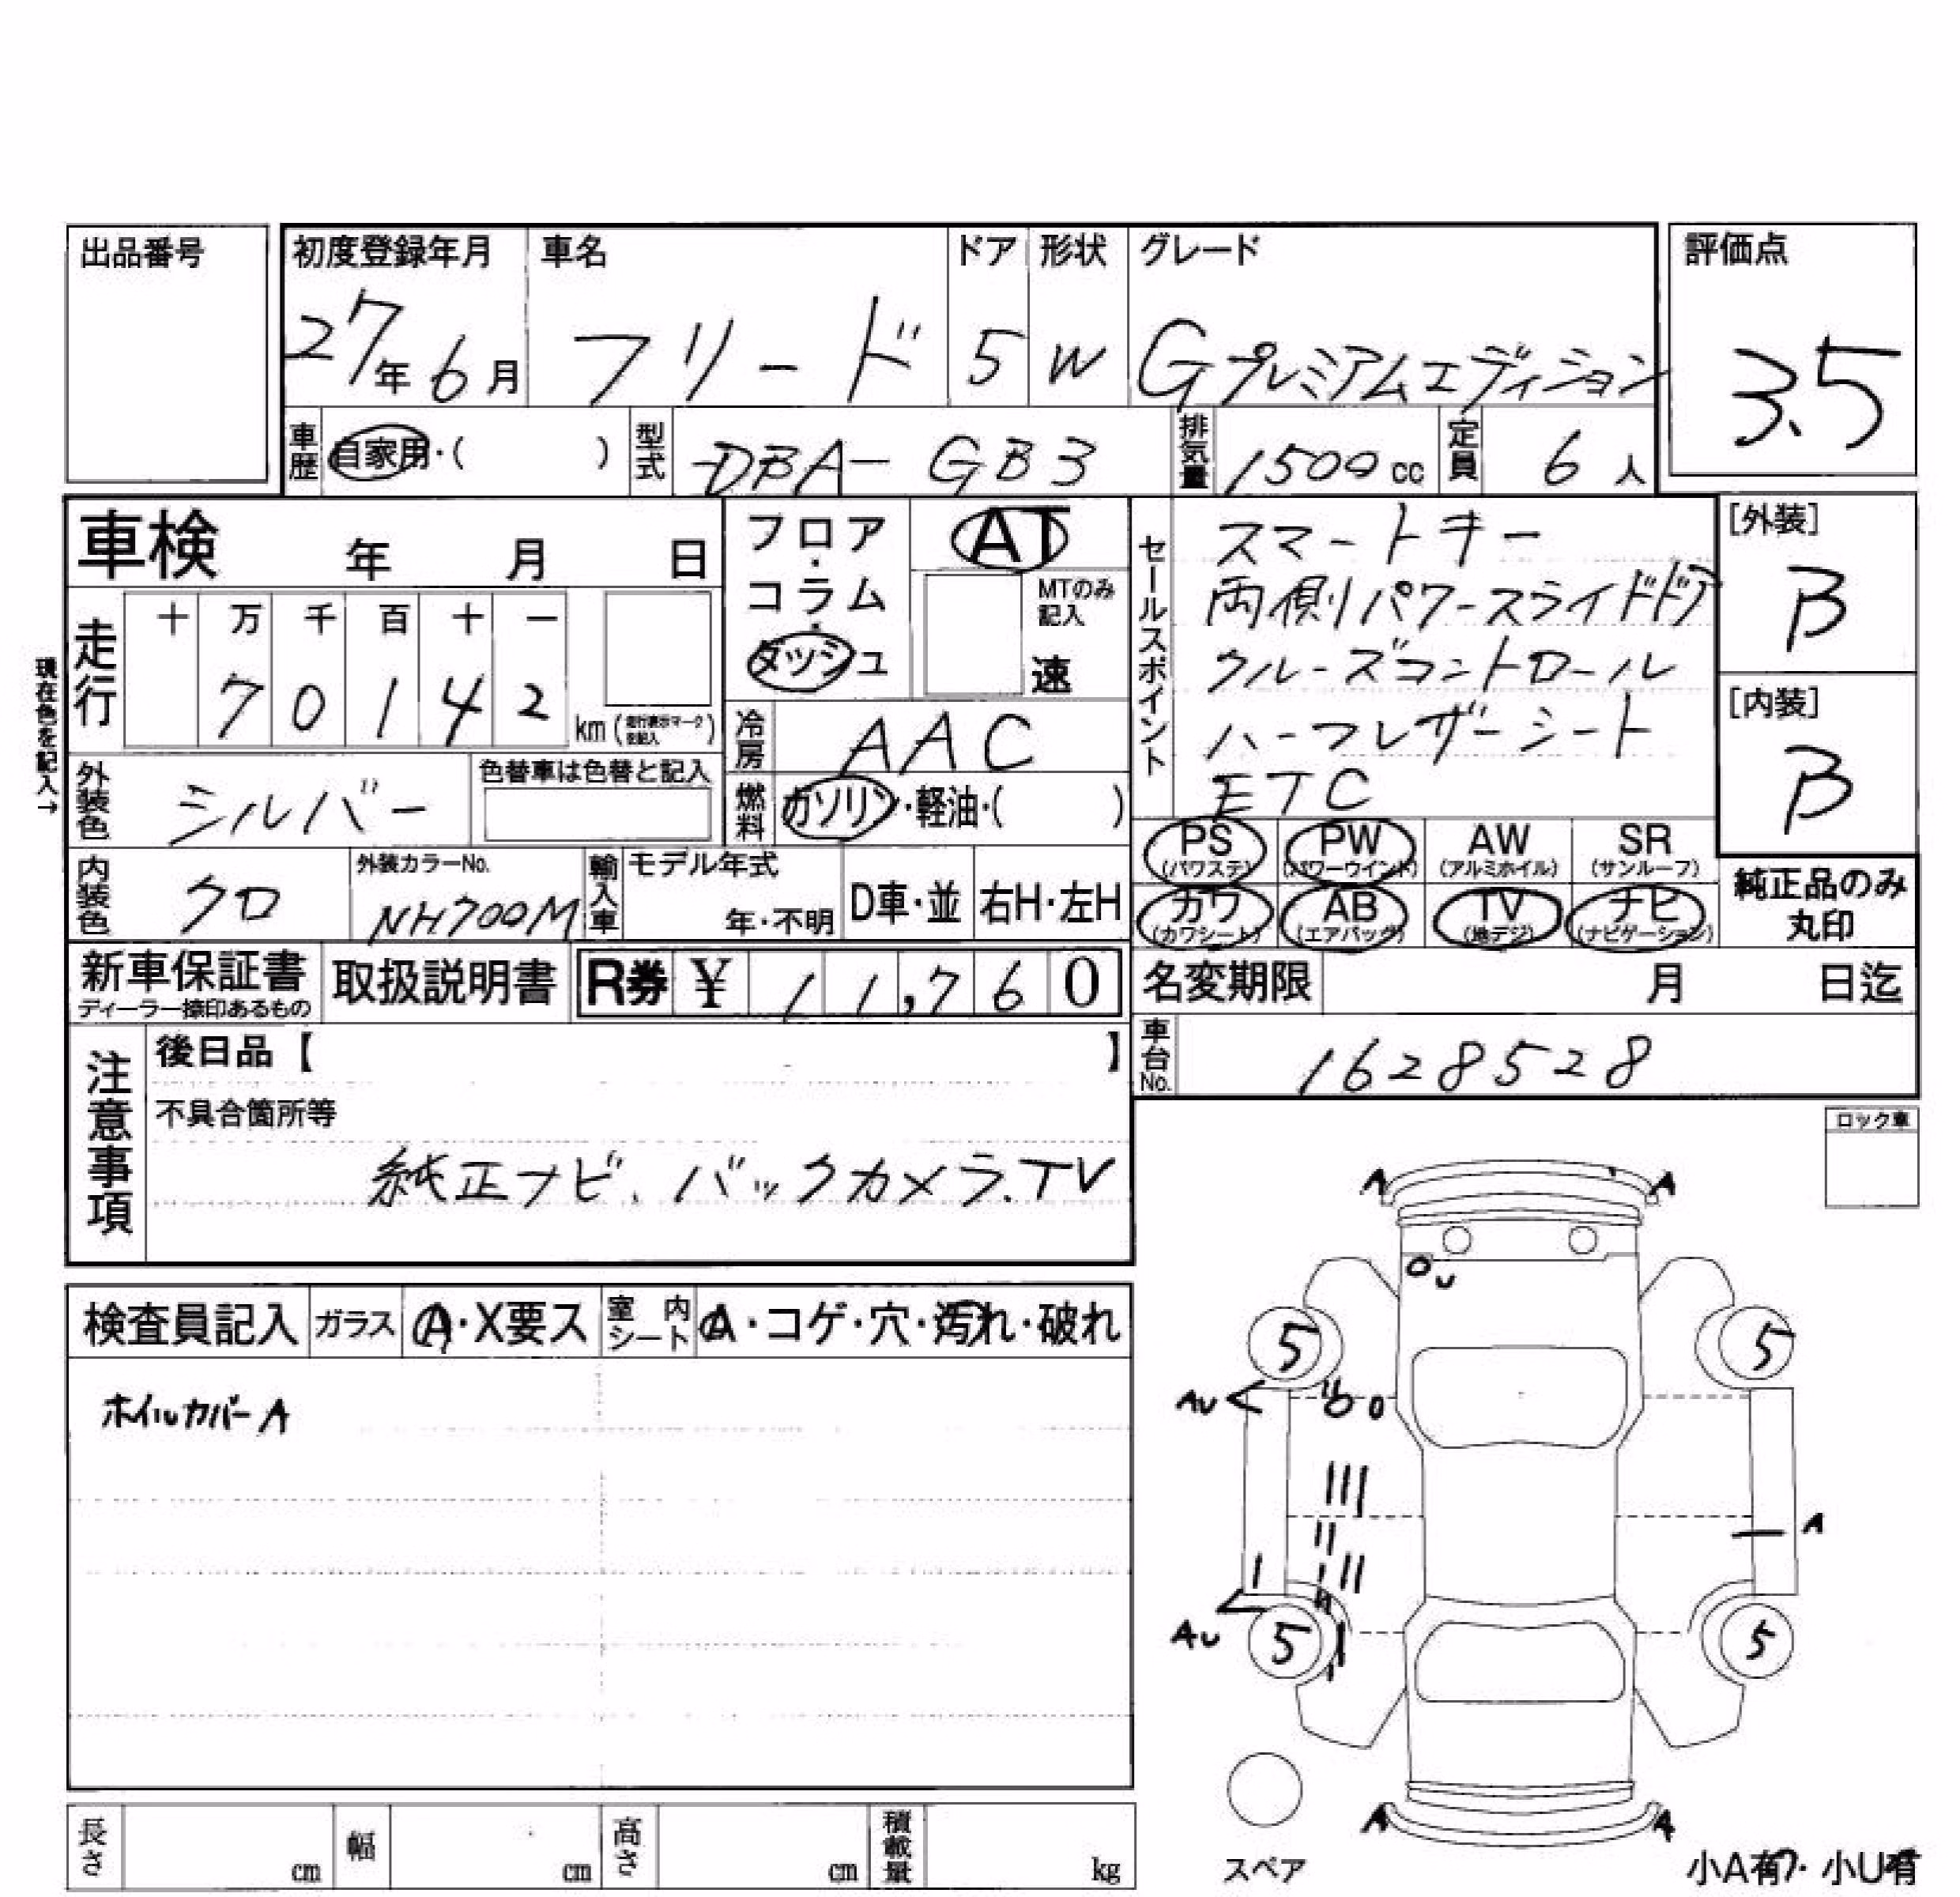 出品番号
初度登録年月 車名 ドア 形状 グレード 評価点
27年6月 フリード 5 W Gプレミアムエディション 3.5
車歴 自家用・( ) 型式 DBA-GB3 排気量 1500cc 定員 6人
車検 年 月 日
フロア・コラム・ダッシュ
AT
MTのみ記入
速
現在色を記入→
走行 十 万 千 百 十 一
7 0 1 4 2 km (走行表示マークを記入)
冷房 AAC
外装色 シルバー 色替車は色替と記入
燃料 ガソリン・軽油・( )
内装色 クロ 外装カラーNo. NH700M
輸入車 モデル年式 年・不明 D車・並 右H・左H
セールスポイント
スマートキー
両側パワースライドドア
クルーズコントロール
ハーフレザーシート
ETC
[外装]
B
[内装]
B
PS (パワステ) PW (パワーウインド) AW (アルミホイル) SR (サンルーフ)
カワ (カワシート) AB (エアバッグ) TV (地デジ) ナビ (ナビゲーション)
純正品のみ
丸印
新車保証書 ディーラー捺印あるもの 取扱説明書 R券 ¥ 11,760
名変期限 月 日迄
車台No. 1628528
注意事項
後日品【 】
不具合箇所等
純正ナビ、バックカメラ.TV
ロック車
検査員記入 ガラス A・X要ス 室内シート A・コゲ・穴・汚れ・破れ
ホイルカバーA
A A
U
5 5
AU
A
AU 5 5
A A
スペア
小A有・小U有
長さ cm 幅 cm 高さ cm 積載量 kg